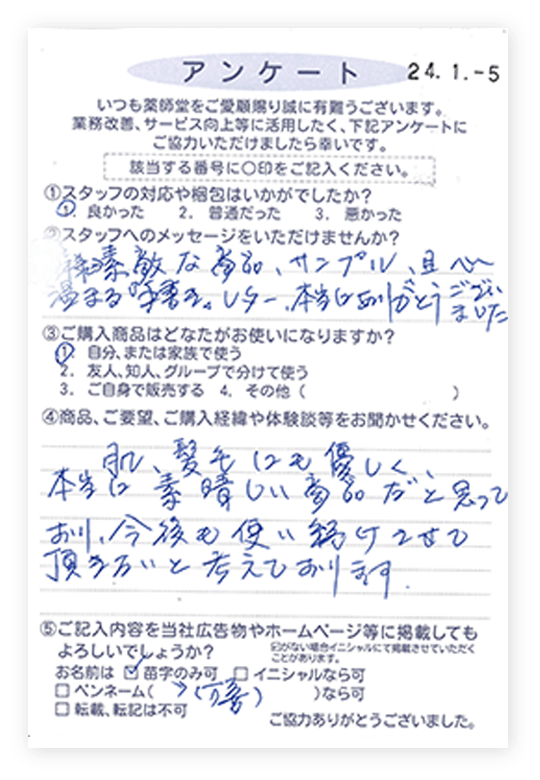 アンケート
24.1.-5
いつも薬師堂をご愛顧賜り誠に有難うございます。
業務改善、サービス向上等に活用したく、下記アンケートに
ご協力いただけましたら幸いです。
該当する番号に○印をご記入ください。
①スタッフの対応や梱包はいかがでしたか?
1. 良かった 2. 普通だった 3. 悪かった
②スタッフへのメッセージをいただけませんか?
素敵な商品、サンプル、且 心
温まる手書き、レター、本当にありがとうござい
ました
③ご購入商品はどなたがお使いになりますか?
1. 自分、または家族で使う
2. 友人、知人、グループで分けて使う
3. ご自身で販売する 4. その他( )
④商品、ご要望、ご購入経緯や体験談等をお聞かせください。
肌、髪毛にも優しく、
本当に素晴しい商品だと思って
おり、今後も使い続けさせて
頂きたいと考えております.
⑤ご記入内容を当社広告物やホームページ等に掲載しても
よろしいでしょうか?
☑がない場合イニシャルにて掲載させていただく
ことがあります。
お名前は ☑ 苗字のみ可 □ イニシャルなら可
□ ペンネーム( )なら可
□ 転載、転記は不可
ご協力ありがとうございました。